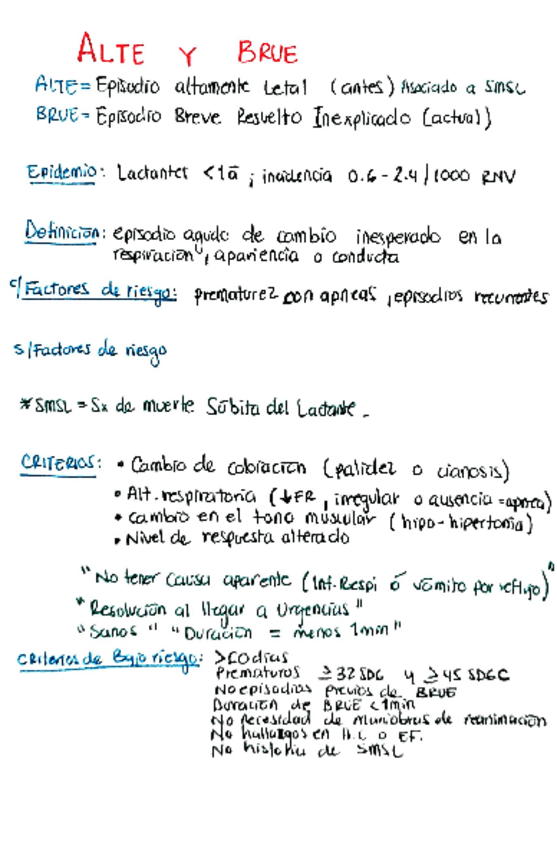 ALTE Y BRUE
ALTE = Episodio altamente Letal (antes) Asociado a SMSL
BRUE = Episodio Breve Resuelto Inexplicado (actual)
Epidemio: Lactantes <1a ; incidencia 0.6 - 2.4 / 1000 RNV
Definición: episodio agudo de cambio inesperado en la
respiración, apariencia o conducta
c/Factores de riesgo: prematurez con apneas, episodios recurrentes
s/Factores de riesgo
* SMSL = Sx de muerte Súbita del Lactante.
CRITERIOS: • Cambio de coloración (palidez o cianosis)
• Alt. respiratoria (↓FR, irregular o ausencia = apnea)
• cambio en el tono muscular (hipo-hipertonia)
• Nivel de respuesta alterado
"No tener causa aparente (Inf. Respi ó vómito por reflujo)"
"Resolución al llegar a Urgencias"
"Sanos" "Duración = menos 1min"
Criterios de Bajo riesgo: >60 días
Prematuros ≥32 SDG y ≥45 SDGC
No episodios previos de BRUE
Duración de BRUE <1min
No necesidad de maniobras de reanimación
No hallazgos en H.C o EF.
No historia de SMSL